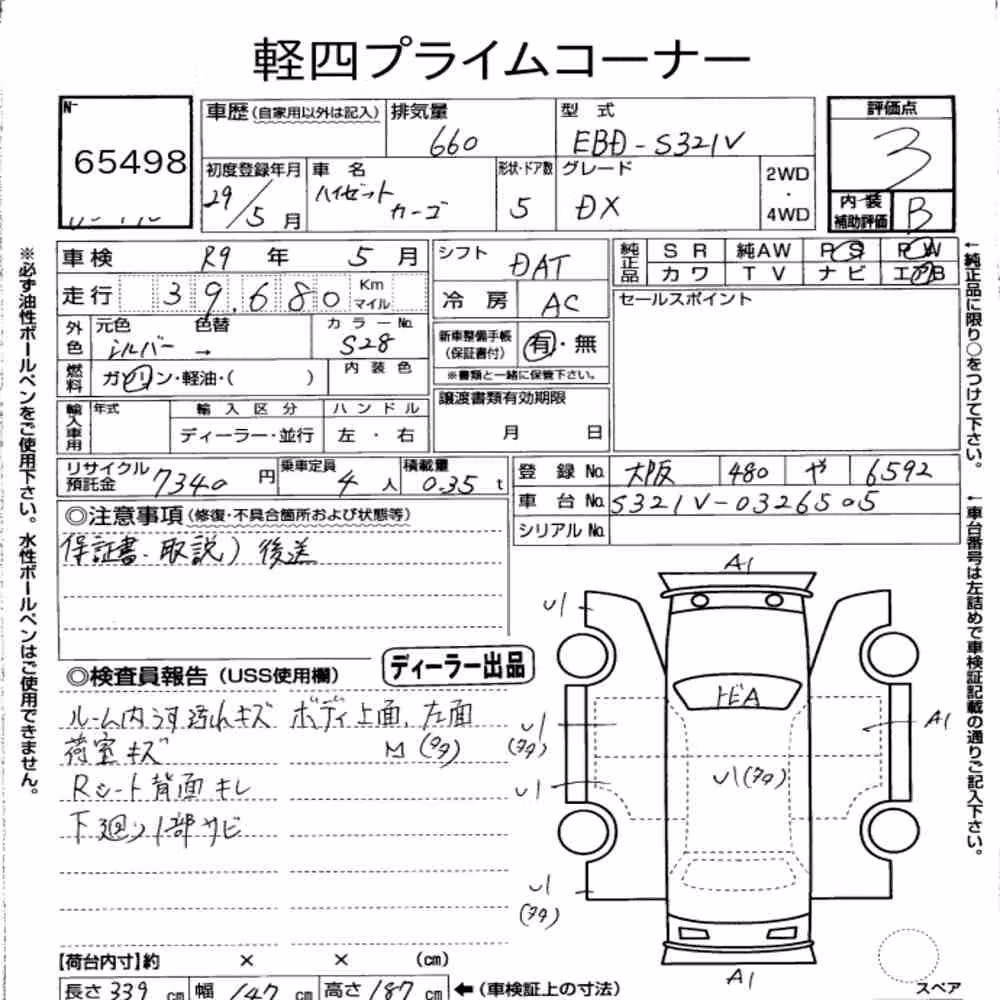 軽四プライムコーナー
No.
65498
車歴(自家用以外は記入)
排気量
660
型 式
EBD-S321V
評価点
3
初度登録年月
29/5月
車 名
ハイゼット
カーゴ
形状・ドア数
5
グレード
DX
2WD
・
4WD
内装
補助評価
B
車検 R9年 5月
走行 39,680 Km
マイル
シフト
DAT
冷房
AC
純正品
SR 純AW PS PW
カワ TV ナビ エアB
セールスポイント
外色
元色 色替
シルバー →
カラーNo.
S28
新車整備手帳
(保証書付)
有・無
※書類と一緒に保管下さい。
燃料
ガソリン・軽油・( )
内装色
輸入車用
年式
輸入区分
ディーラー・並行
ハンドル
左・右
譲渡書類有効期限
月 日
リサイクル
預託金 7340 円
乗車定員
4 人
積載量
0.35 t
登録No. 大阪 480 や 6592
車台No. S321V-0326505
シリアルNo.
◎注意事項(修復・不具合箇所および状態等)
保証書、取説)後送
◎検査員報告(USS使用欄)
ディーラー出品
ルーム内うす汚れキズ ボディ上面、左面
荷室キズ M(タタ)
Rシート背面キレ
下廻り1部サビ
A1
U1
トビA
U1
(タタ)
A1
U1(タタ)
U1
U1
(タタ)
A1
スペア
【荷台内寸】約 × × (cm)
長さ 339 cm 幅 147 cm 高さ 187 cm ←(車検証上の寸法)
※必ず油性ボールペンをご使用下さい。水性ボールペンはご使用できません。
←純正品に限り○をつけて下さい。
←車台番号は左詰めで車検証記載の通りご記入下さい。